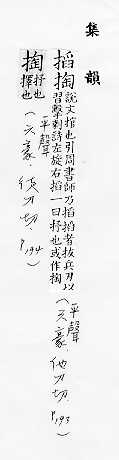 集韻
搯掏
說文捾也引周書師乃搯搯者拔兵刃以
習擊刺詩左旋右搯一曰抒也或作掏
(平聲
六豪．他刀切．P193)
掏
抒也
擇也
(平聲
六豪．徒刀切．P194)